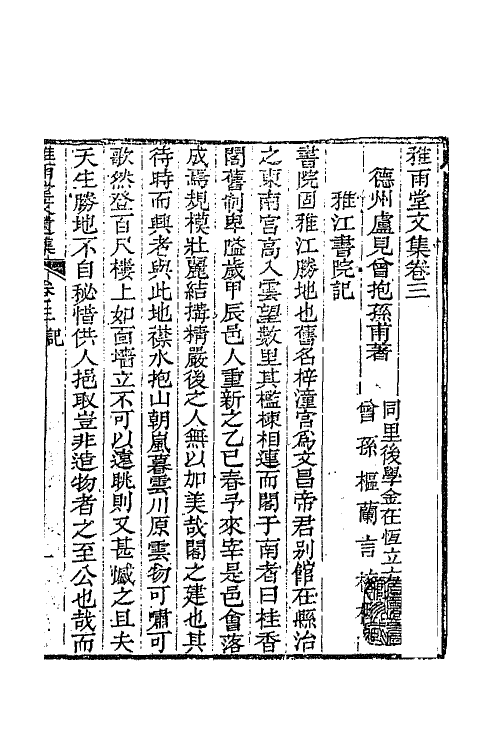 雅雨堂文集卷三
德州盧見曾抱孫甫著
同里後學金在恆立方
曾孫樞蘭言
雅江書院記
書院固雅江勝地也舊名梓潼宮爲文昌帝君別館在縣治
之東南宮高入雲望數里其檻棟相連而閣于南者曰桂香
閣舊制卑隘歲甲辰邑人重新之乙巳春予來宰是邑會落
成焉規模壯麗結搆精嚴後之人無以加美哉閣之建也其
待時而興者與此地襟水抱山朝嵐暮雲川原雲物可嘯可
歌然登百尺樓上如面墻立不可以遠眺則又甚憾之且夫
天生勝地不自秘惜供人挹取豈非造物者之至公也哉而
雅雨堂文集
卷三 記
一